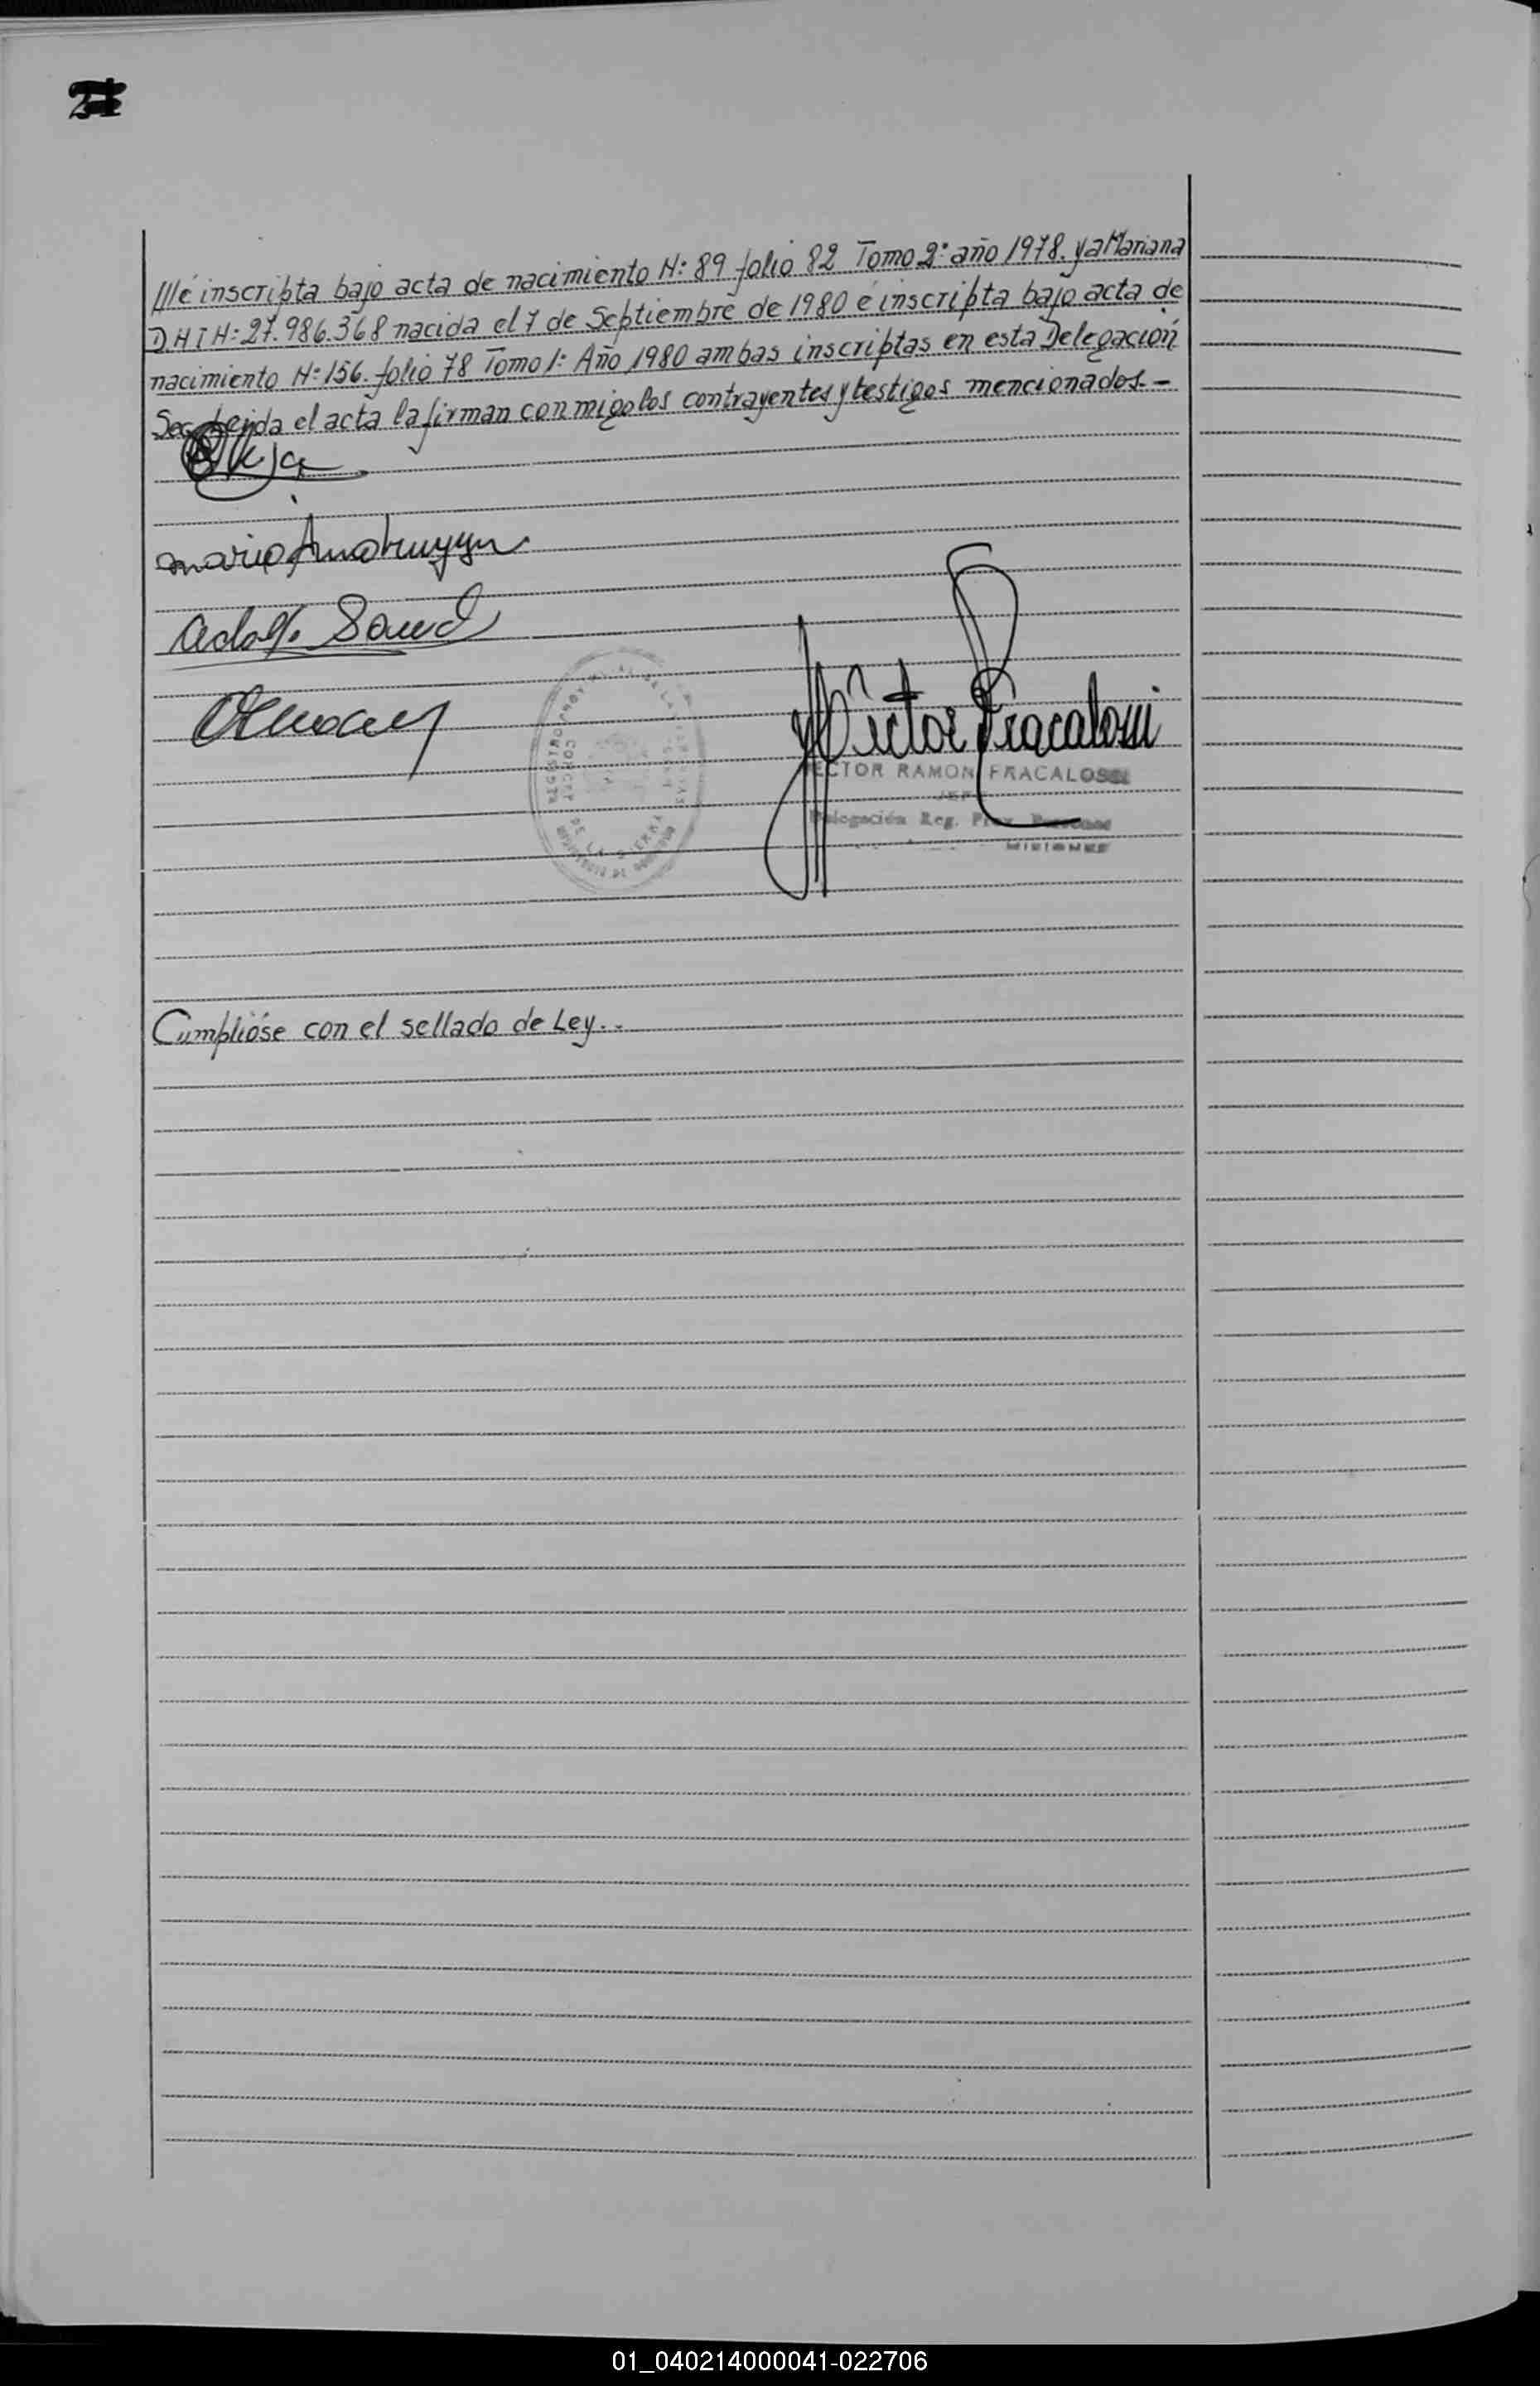 21
///é inscripta bajo acta de nacimiento N: 89 folio 82 Tomo 2: año 1978. y a Mariana
D.N I N: 27.986.368 nacida el 7 de Septiembre de 1980 é inscripta bajo acta de
nacimiento N: 156. folio 78 Tomo 1: Año 1980 ambas inscriptas en esta Delegación
el acta la firman conmigo los contrayentes y testigos mencionados.-
Victor Fracalossi
ECTOR RAMON FRACALOSSI
JEFE
Delegación Reg. Prov. Personas
MISIONES
Cumplióse con el sellado de Ley..
01_040214000041-022706